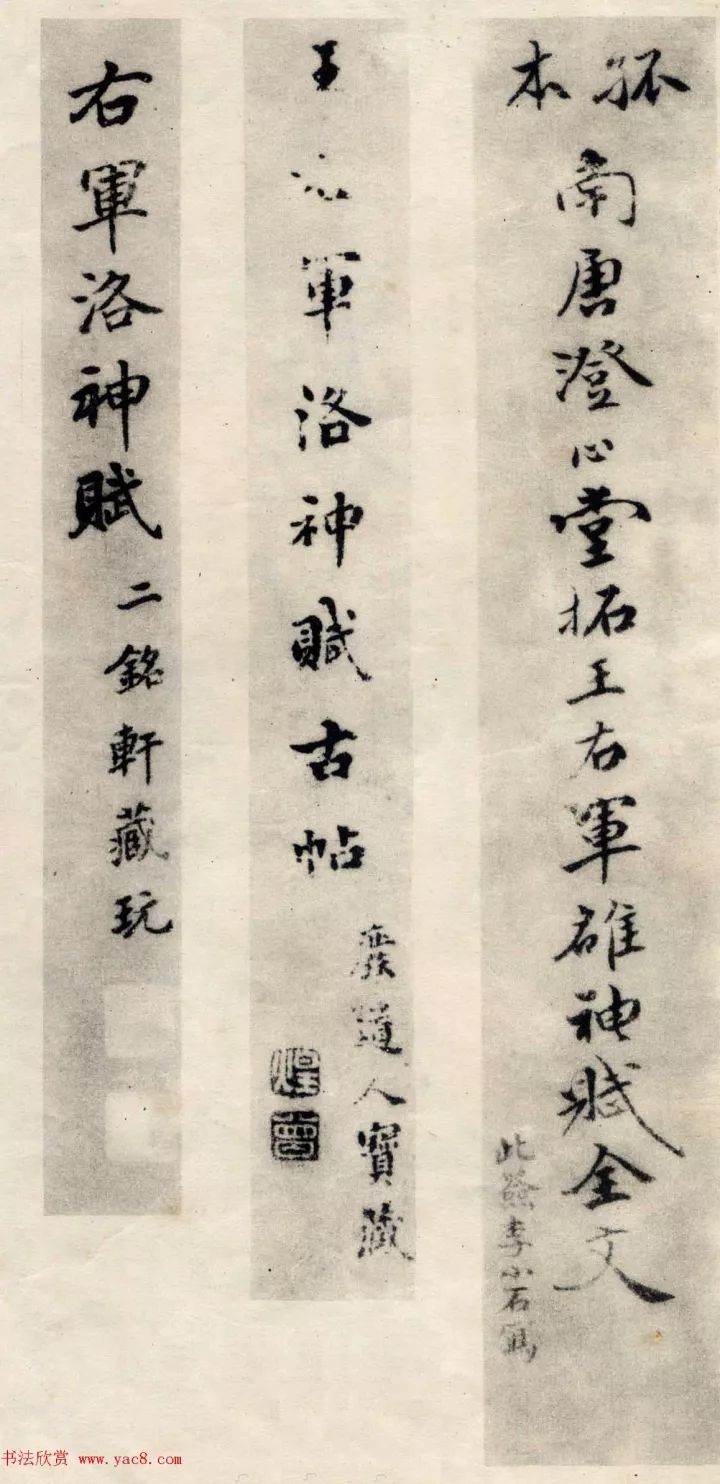 孤本
南唐澄心堂拓王右軍雒神賦全文
此簽李小石寫
王右軍洛神賦古帖
道人寶藏
右軍洛神賦
二銘軒藏玩
书法欣赏 www.yac8.com